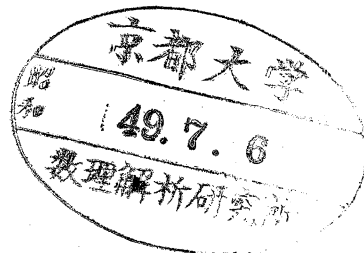 京都大学
昭和
49.7.6
数理解析研究所